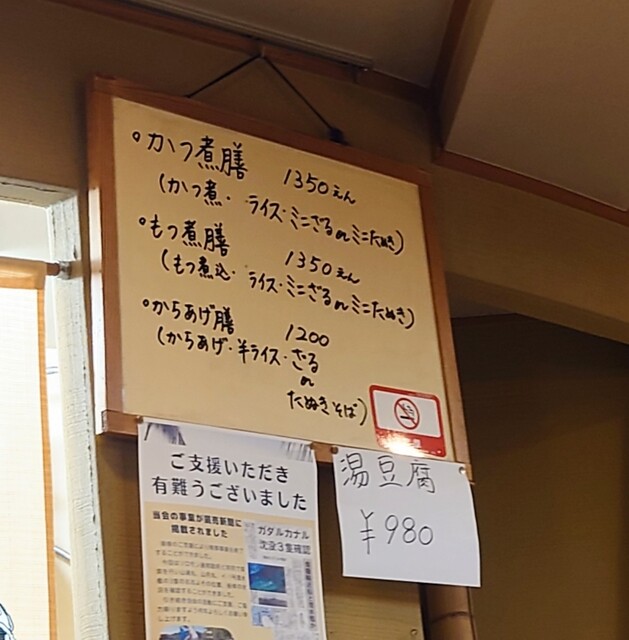 。かつ煮膳 1350えん
(かつ煮・ライス・ミニざるorミニたぬき)
。もつ煮膳 1350えん
(もつ煮込・ライス・ミニざるorミニたぬき)
。からあげ膳 1200
(からあげ・半ライス・ざる
or
たぬきそば)
湯豆腐
¥980
ご支援いただき
有難うございました
当会の事業が読売新聞に
掲載されました
ガダルカナル
沈没3隻確認